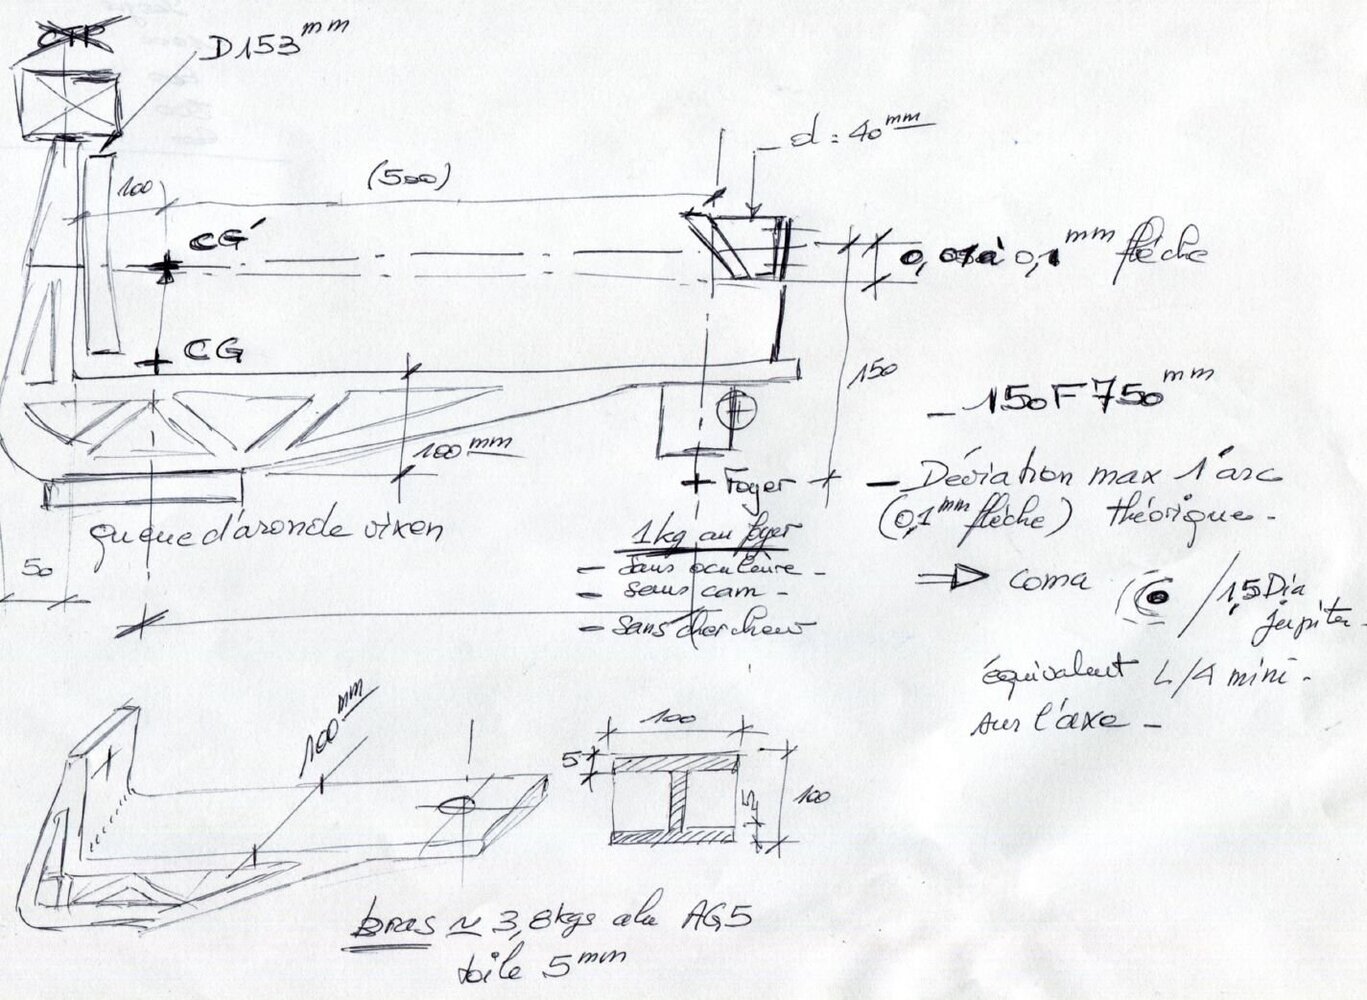 CTP
D153 mm
d = 40 mm
100
(500)
CG'
0,01 à 0,1 mm flèche
CG
150
- 150 F 750 mm
100 mm
Foyer
- Déviation max 1" arc
(0,1 mm flèche) théorique -
queue d'aronde vixen
1 kg au foyer
- Sans oculaire -
- Sans cam -
- Sans chercheur
50
⇒ coma / 1,5 Dia
jupiter -
équivalent L/4 mini -
sur l'axe -
100 mm
100
5
100
5
bras ≃ 3,8 kgs alu AG5
toile 5 mm